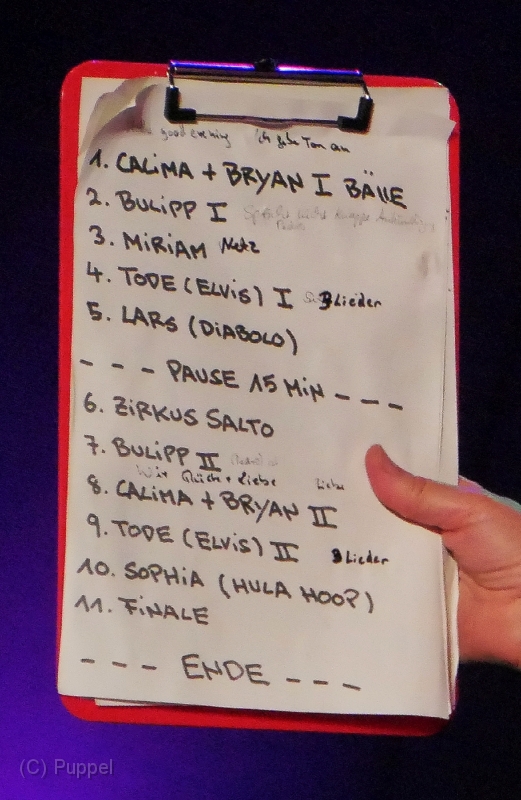 good evening Ich gebe Ton an
1. CALIMA + BRYAN I BÄLLE
2. BULIPP I
3. MIRIAM Netz
4. TODE (ELVIS) I 3 Lieder
5. LARS (DIABOLO)
--- PAUSE 15 MIN ---
6. ZIRKUS SALTO
7. BULIPP II
Wir Glück + Liebe Liebe
8. CALIMA + BRYAN II
9. TODE (ELVIS) II 3 Lieder
10. SOPHIA (HULA HOOP)
11. FINALE
--- ENDE ---
(C) Puppel